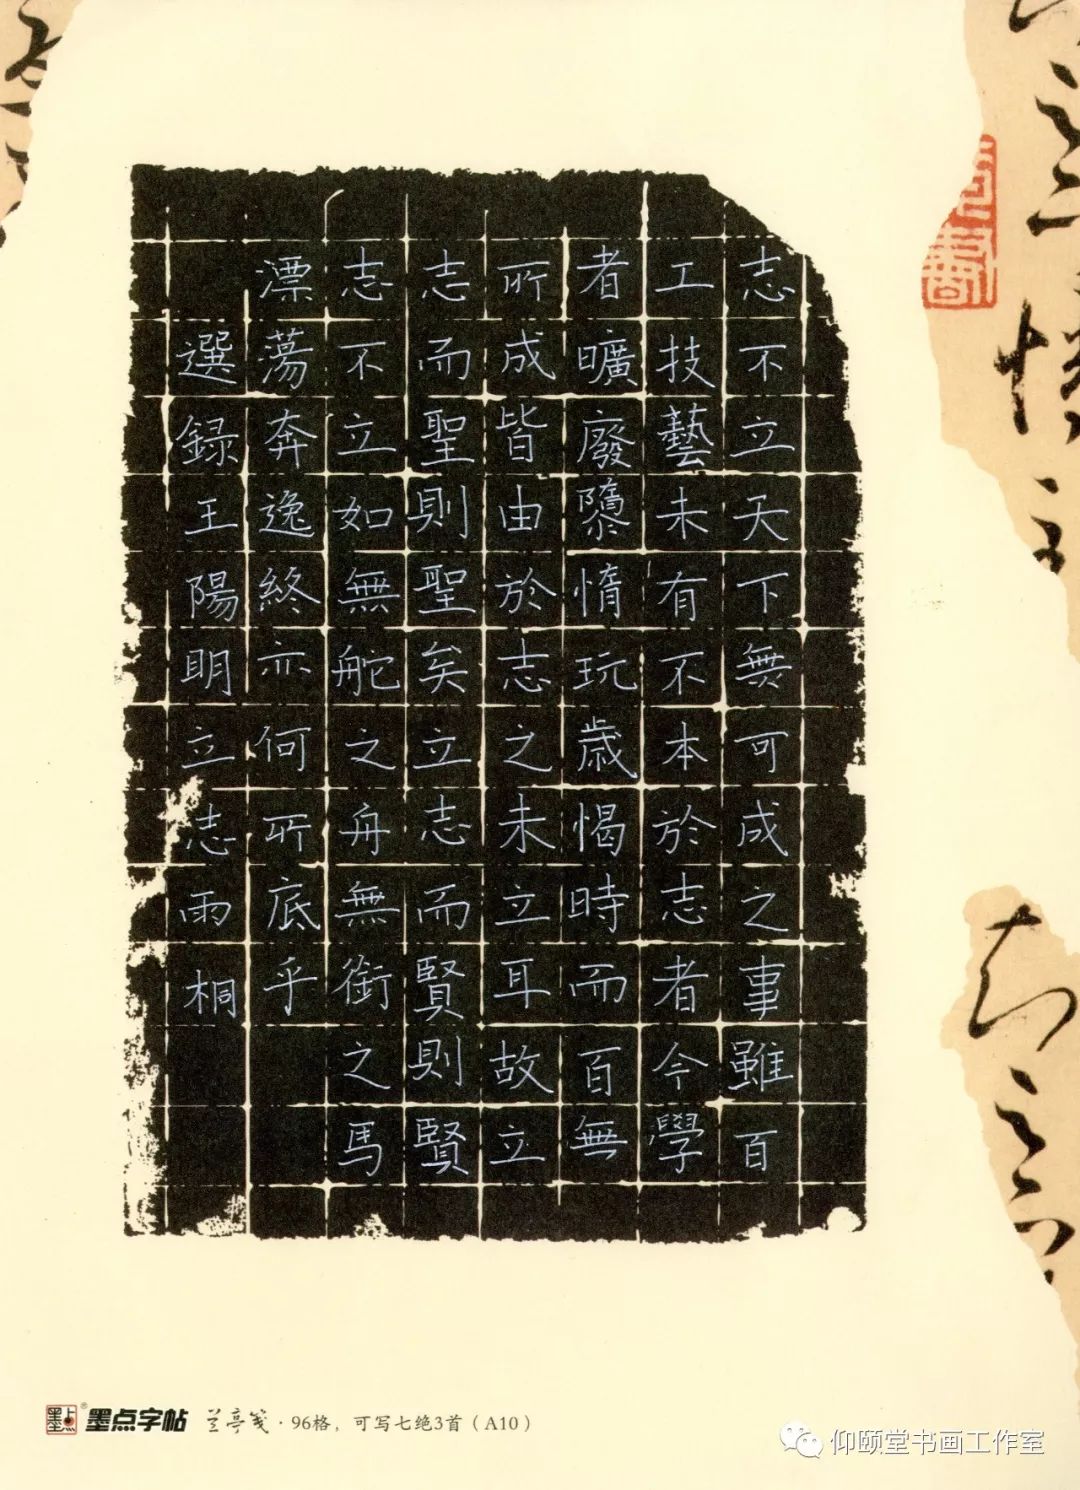 志不立天下無可成之事雖百
工技藝未有不本於志者今學
者曠廢隳惰玩歲愒時而百無
所成皆由於志之未立耳故立
志而聖則聖矣立志而賢則賢
志不立如無舵之舟無銜之馬
漂蕩奔逸終亦何所底乎
選録王陽明立志雨桐
墨点字帖 兰亭笺·96格，可写七绝3首（A10）
仰颐堂书画工作室